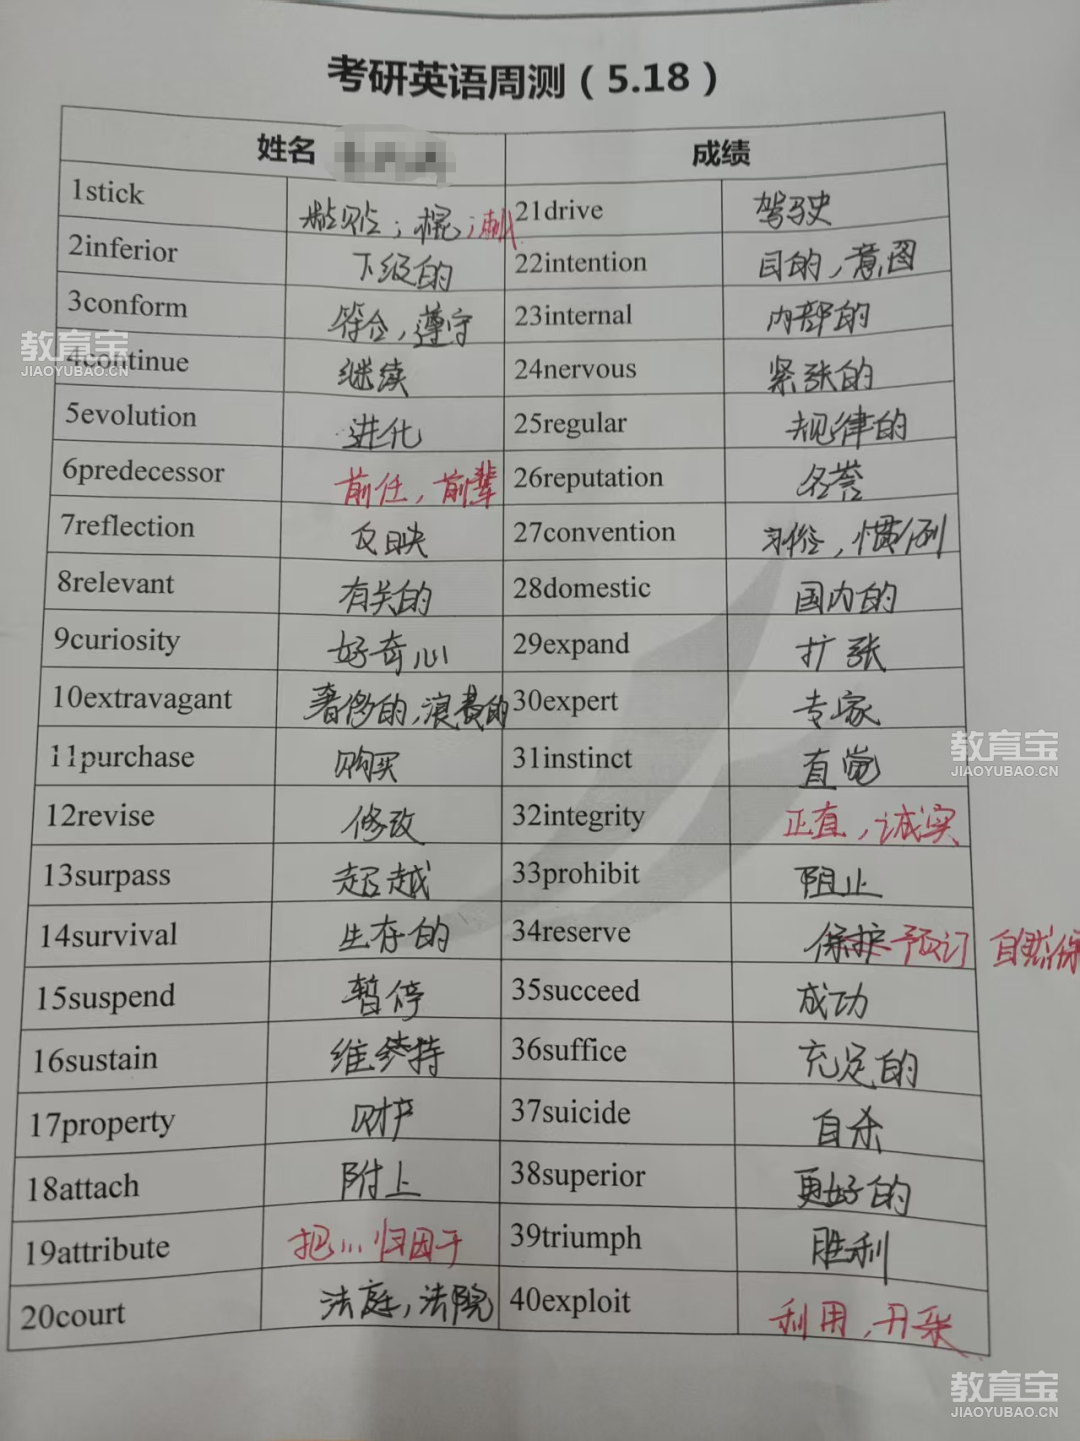 考研英语周测（5.18）
姓名 成绩
1stick 粘贴；棍；刺 21drive 驾驶
2inferior 下级的 22intention 目的，意图
3conform 符合，遵守 23internal 内部的
4continue 继续 24nervous 紧张的
5evolution 进化 25regular 规律的
6predecessor 前任，前辈 26reputation 名誉
7reflection 反映 27convention 习俗，惯例
8relevant 有关的 28domestic 国内的
9curiosity 好奇心 29expand 扩张
10extravagant 奢侈的，浪费的 30expert 专家
11purchase 购买 31instinct 直觉
12revise 修改 32integrity 正直，诚实
13surpass 超越 33prohibit 阻止
14survival 生存的 34reserve 保护 预订 自然保
15suspend 暂停 35succeed 成功
16sustain 维持 36suffice 充足的
17property 财产 37suicide 自杀
18attach 附上 38superior 更好的
19attribute 把…归因于 39triumph 胜利
20court 法庭，法院 40exploit 利用，开采
教育宝
JIAOYUBAO.CN
教育宝
JIAOYUBAO.CN
教育宝
JIAOYUBAO.CN